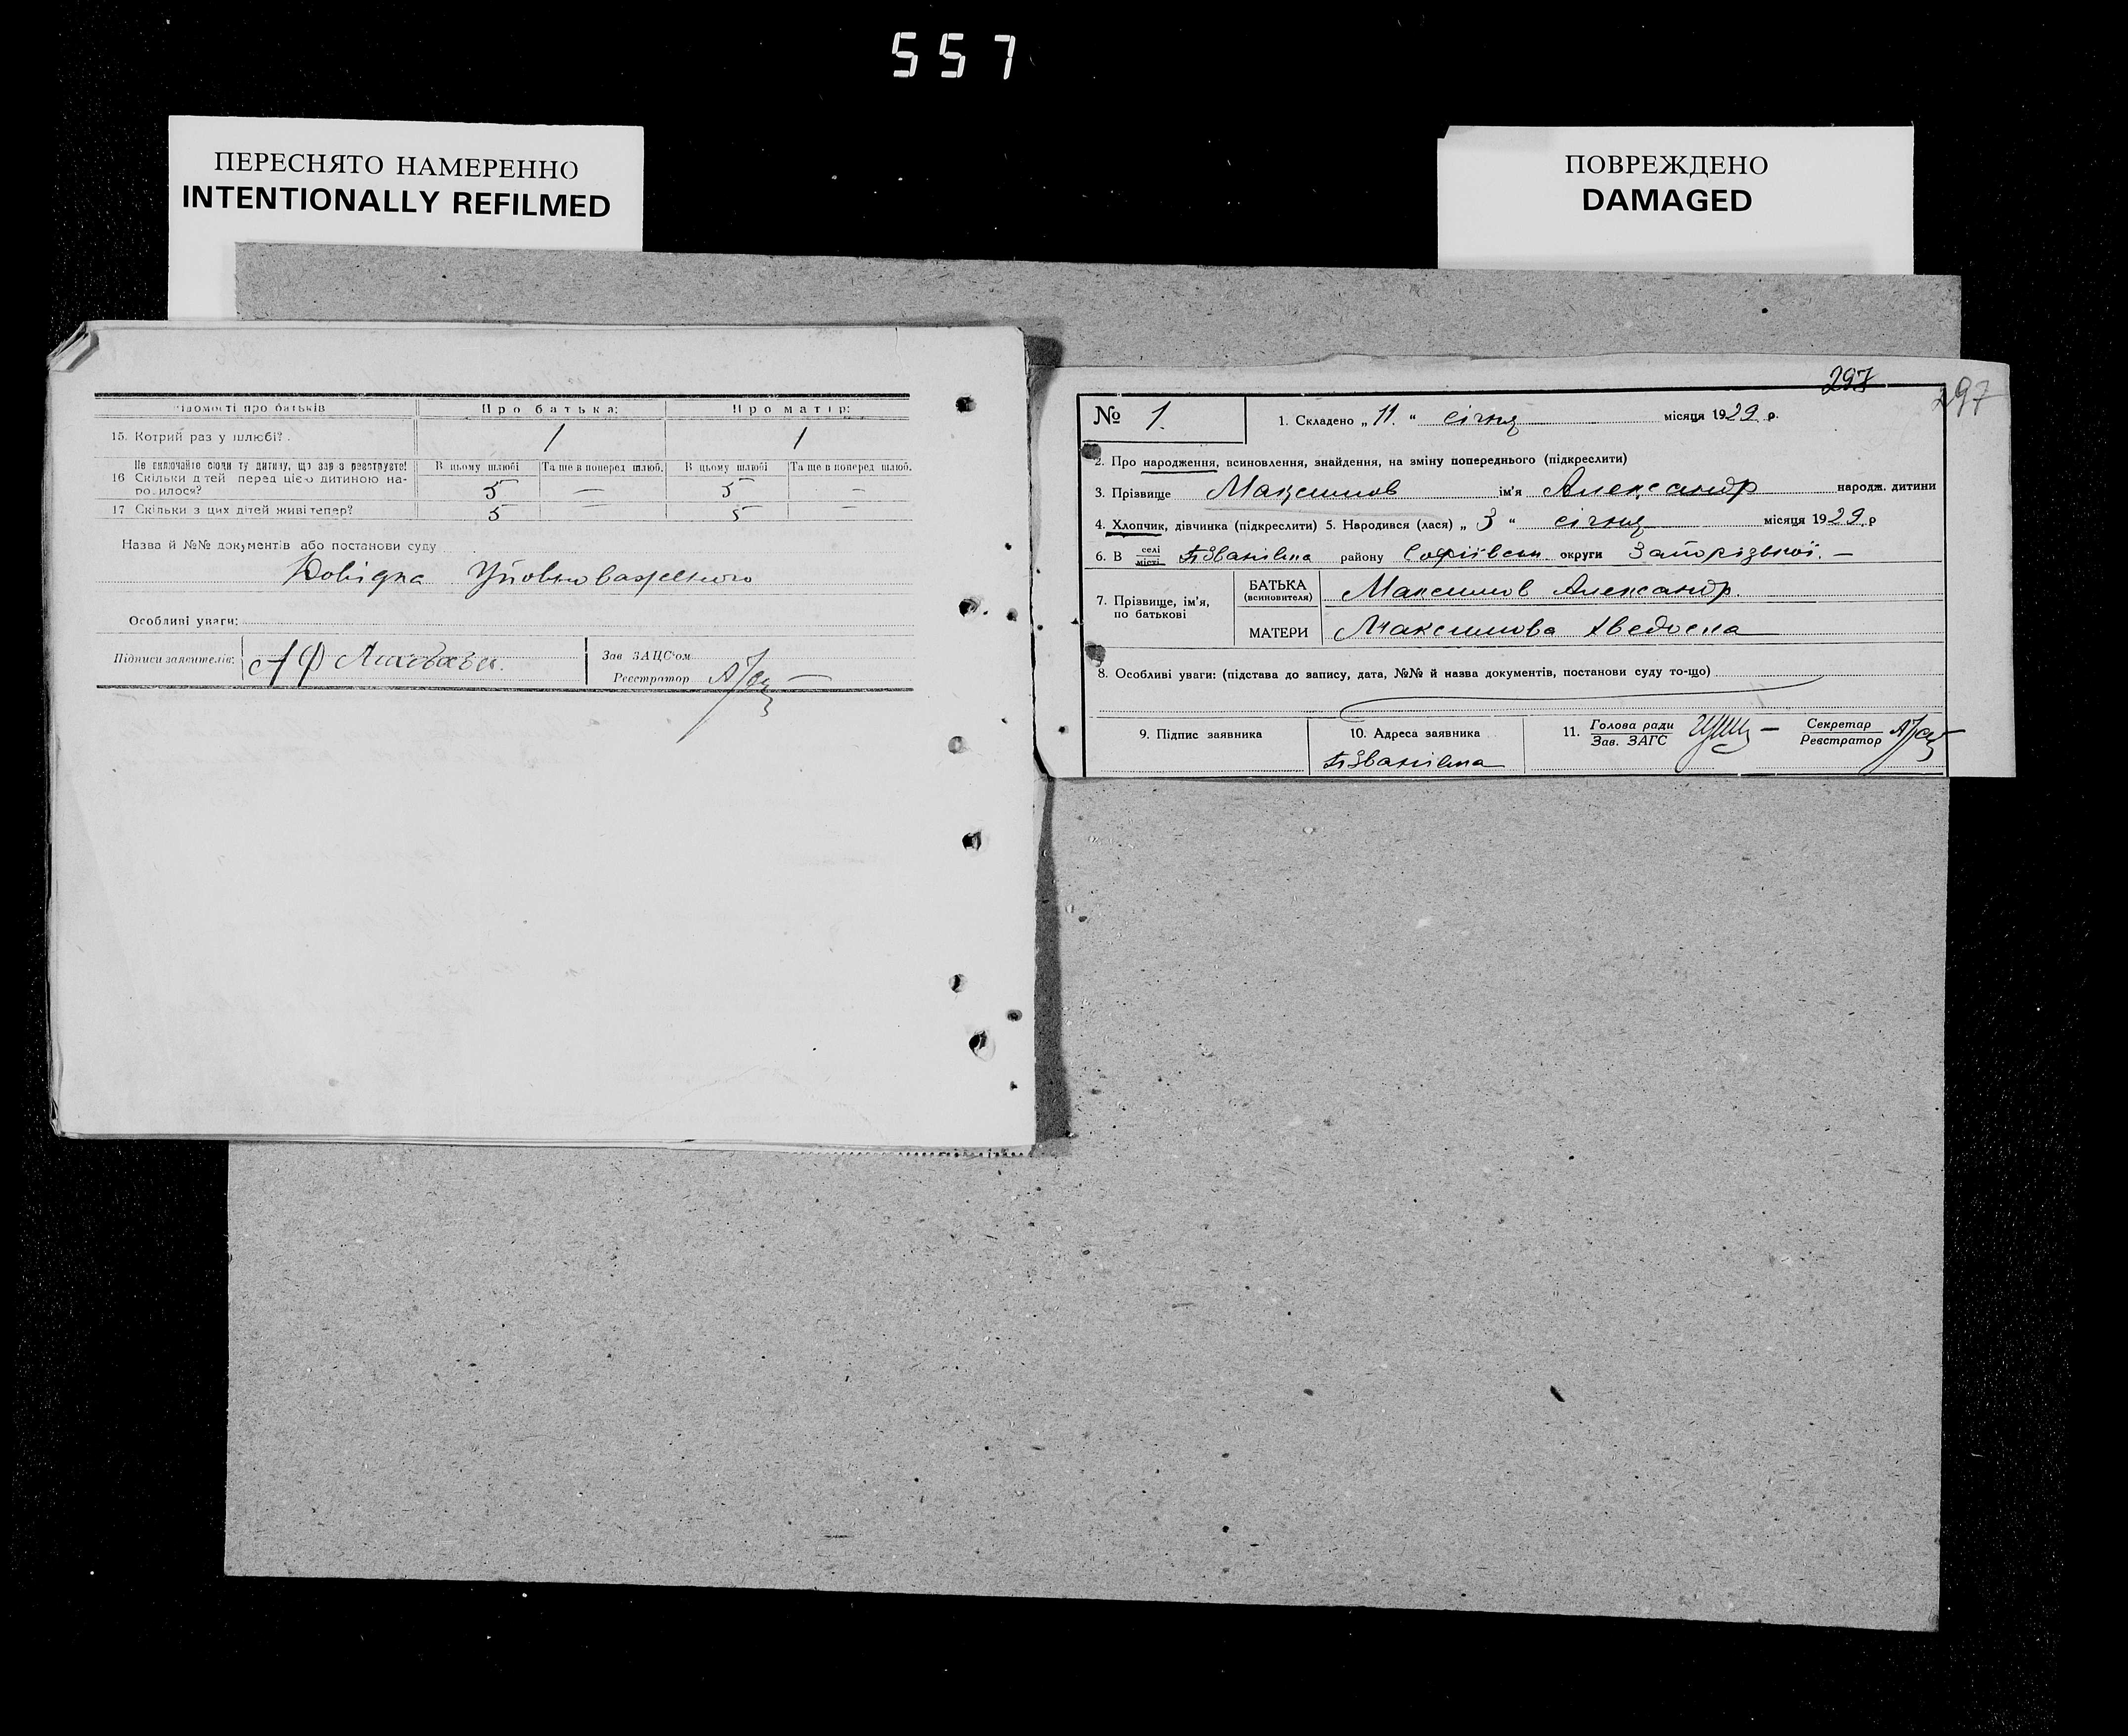 557
ПЕРЕСНЯТО НАМЕРЕННО
INTENTIONALLY REFILMED
ПОВРЕЖДЕНО
DAMAGED
ідомості про батьків Про батька: Про матір:
15. Котрий раз у шлюбі? 1 1
Не включайте сюди ту дитину, що зараз реєструєте! В цьому шлюбі Та ще в поперед. шлюб. В цьому шлюбі Та ще в поперед. шлюб.
16 Скільки дітей перед цією дитиною на-
родилося? 5 — 5 —
17 Скільки з цих дітей живі тепер? 5 — 5 —
Назва й №№ документів або постанови суду
Довідка Уповноваженого
Особливі уваги:
Підписи заявителів: Зав ЗАЦС'ом
Реєстратор
297 297
№ 1. 1. Складено „11." січня місяця 1929 р.
2. Про народження, всиновлення, знайдення, на зміну попереднього (підкреслити)
3. Прізвище Максимов ім'я Александр народж. дитини
4. Хлопчик, дівчинка (підкреслити) 5. Народився (лася) „3" січня місяця 1929 р
6. В селі місті району Софіївськ округи Запорізької. —
7. Прізвище, ім'я, по батькові
БАТЬКА (всиновителя) Максимов Александр.
МАТЕРИ Максимова
8. Особливі уваги: (підстава до запису, дата, №№ й назва документів, постанови суду то-що)
9. Підпис заявника 10. Адреса заявника 11. Голова ради Зав. ЗАГС Секретар Реєстратор